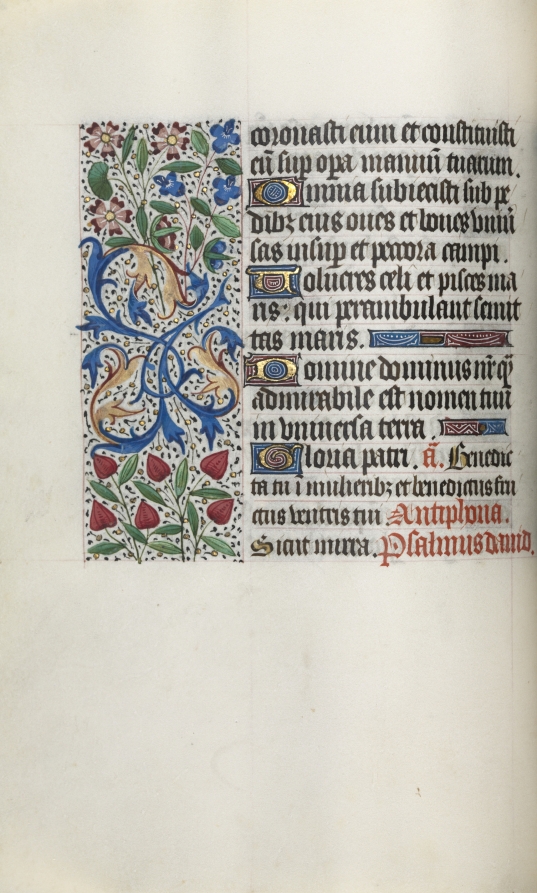 coronasti eum et constituisti
eū sup opa manuū tuarum.
Omnia subiecisti sub pe
dibꝫ eius oues et boues uniū
sas insup et pecora campi.
Volucres celi et pisces ma
ris: qui perambulant semit
tas maris.
Domine dominus nr̄ qͫ
admirabile est nomen tuū
in uniuersa terra
Gloria patri. a͞. Benedic
ta tu ī mulieribꝫ et benedictus fru
ctus uentris tui Antiphona.
Sicut mirra. Psalmus dauid.